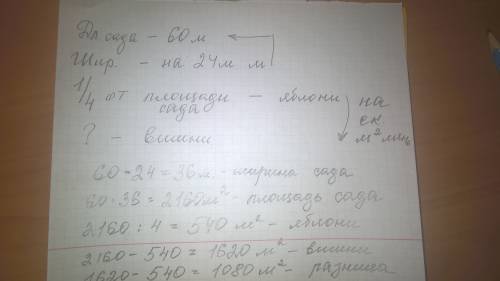 Дл сада – 60 м
Шир. – на 24 м м
1/4 от площади сада – яблони
на ск. м² мень
? – вишни
60 - 24 = 36 м. - ширина сада
60 · 36 = 2160 м² - площадь сада
2160 : 4 = 540 м² - яблони
2160 - 540 = 1620 м² - вишни
1620 - 540 = 1080 м² - разница